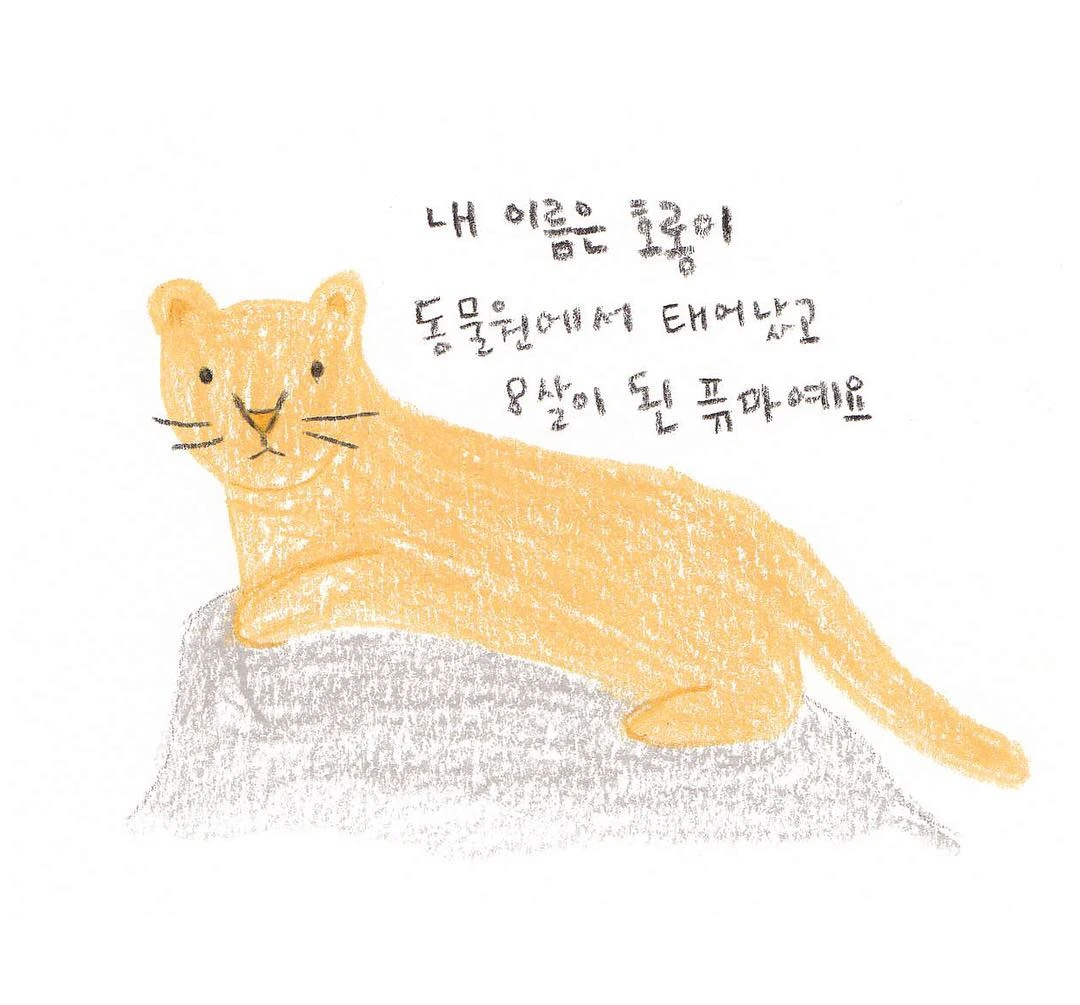 내 이름은 호롱이
동물원에서 태어났고
8살이 된 퓨마예요